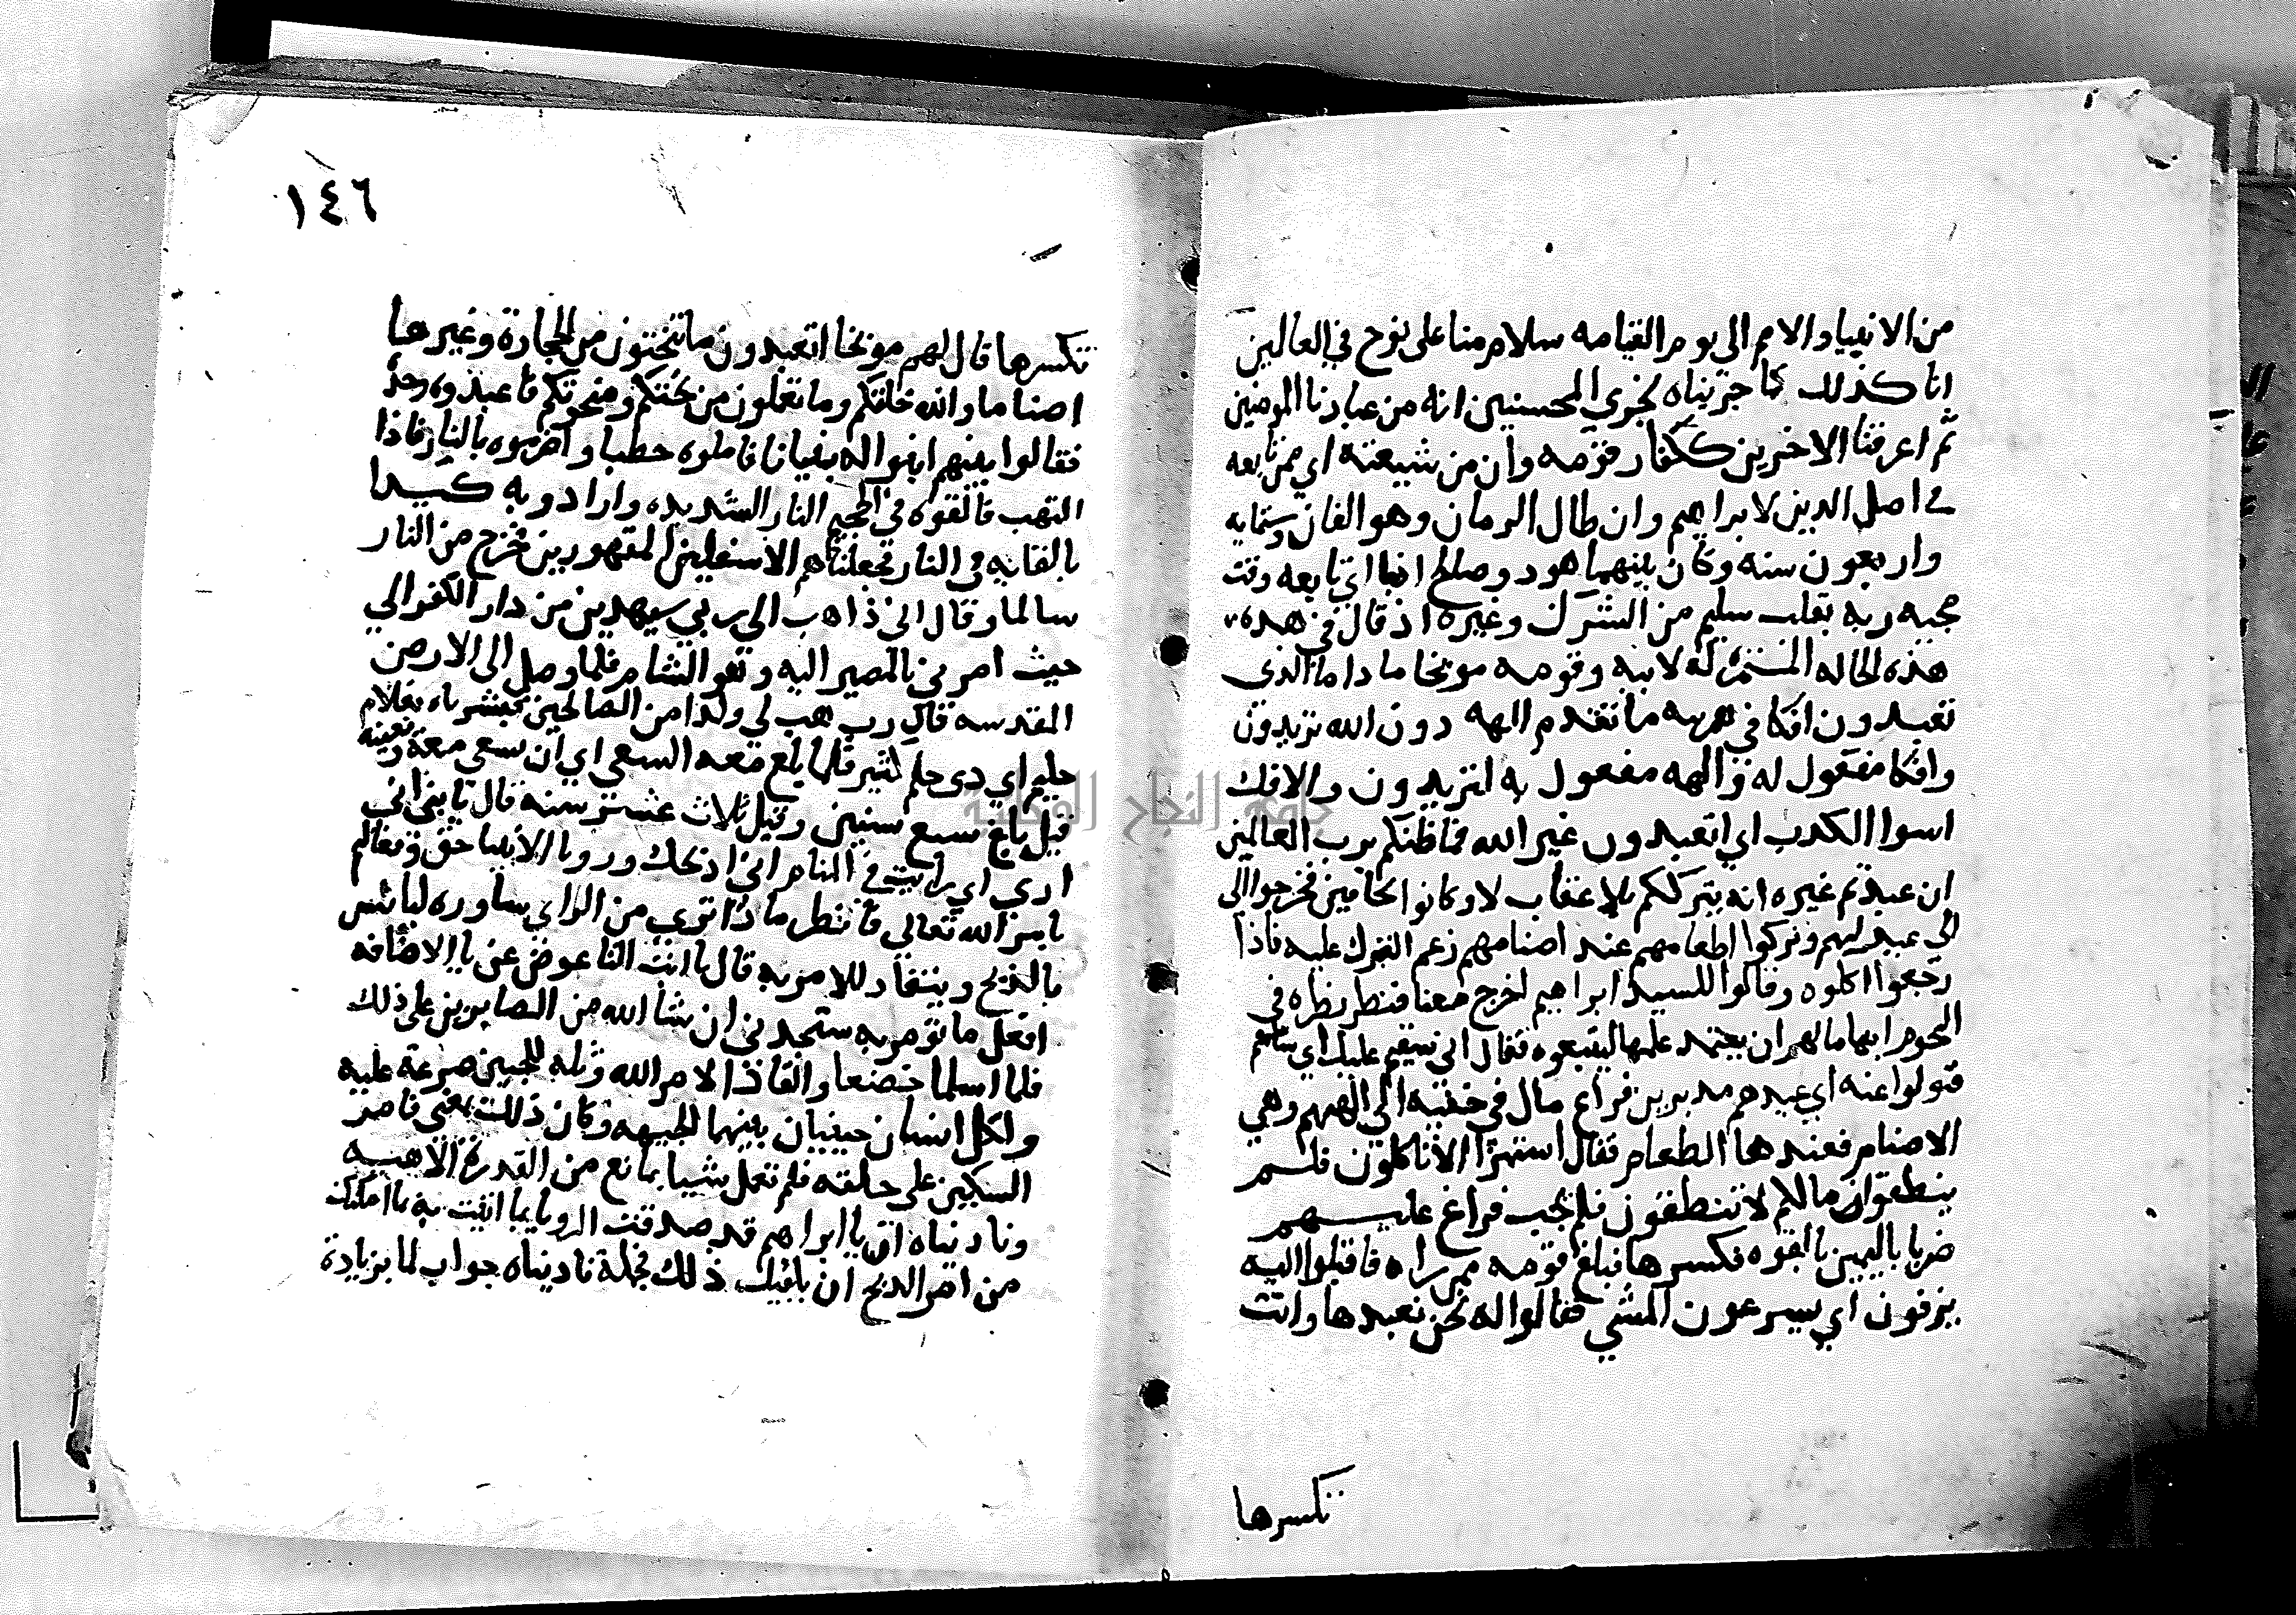 من الانبيا والامم الي يوم القيامه سلام منا علي نوح في العالمين
انا كذلك كما جزيناه نجزي المحسنين انه من عبادنا المومنين
ثم اغرقنا الاخرين كفار قومه وان من شيعته اي ممن تابعه
في اصل الدين لابراهيم وان طال الزمان وهو الفان وستمايه
واربعون سنه وكان بينهما هود وصالح اذجا اي تابعه وقت
مجيه ربه بقلب سليم من الشرك وغيره اذ قال في هذه
هذه الحاله المستمره له لابيه وقومه موبخا ماذا ما الذي
تعبدون افكا في همزيه ما تقدم الهه دون الله تريدون
وافكا مفعول له والهه مفعول به لتريدون والافك
اسوا الكدب اي اتعبدون غير الله فما ظنكم برب العالمين
ان عبدتم غيره انه يترككم بلا عقاب لا وكانوا نجامين فخرجوا الي
الي عيد لهم وتركوا طعامهم عند اصنامهم زعم التبرك عليه فاذا
رجعوا اكلوه وقالوا للسيد ابراهيم اخرج معنا فنظر نظره في
النجوم ايهاما لهم ان يعتمد عليها ليتبعوه فقال اني سقيم عليل اي ساسقم
فتولوا عنه اي عيدهم مدبرين فراغ مال في خفيه الي الهتهم وهي
الاصنام فعندها الطعام فقال استهزا الا تاكلون فلم
ينطقوا مالكم لا تنطقون فلم تجب فراغ عليهم
ضربا باليمين بالقوه فكسرها فبلغ قومه ممن راه فاقبلوا اليه
يزفون اي يسرعون المشي فقالوا له نحن نعبدها وانت
تكسرها
١٤٦
تكسرها قال لهم موبخا اتعبدون ما تنحتون من الحجارة وغيرها
اصناما والله خلقكم وما تعملون من نحتكم ومنحوتكم فاعبدوه وحده
فقالوا بينهم ابنوا له بنيانا فاملوه حطبا واضرموه بالنار فاذا
التهب فالقوه في الجحيم النار الشديده وارادو به كيدا
بالقايه في النار فجعلناهم الاسفلين المقهورين فخرج من النار
سالما وقال اني ذاهب الي ربي سيهدين من دار الكفر الي
حيث امرني بالمصير اليه وهو الشام فلما وصل الي الارض
المقدسه قال رب هب لي ولدا من الصالحين فبشرناه بغلام
حليم اي ذي حلم كثير فلما بلغ معه السعي اي ان يسعي معه ويعينه
قيل بلغ سبع سنين وقيل ثلاث عشر سنه قال يا بني اني
اري اي رايت في المنام اني اذبحك ورويا الانبيا حق وفعالهم
بامر الله تعالي فانظر ماذا تري من الراي شاوره ليانس
بالذبح وينقاد للامر به قال يا ابت التا عوض عن يا الاضافه
افعل ما تومر به ستجدني ان شا الله من الصابرين علي ذلك
فلما اسلما خضعا وانقاذا لامر الله وتله للجبين صرعه عليه
ولكل انسان جبينان بينهما الجبهه وكان ذلك بمني وامر
السكين علي حلقه فلم تعمل شييا بمانع من القدرة الالهيه
وناديناه ان يا ابراهيم قد صدقت الرويا بما اتيت به مما امكنك
من امر الذبح ان يكفيك ذلك فجملة ناديناه جواب لما بزيادة
جامعة النجاح الوطنية